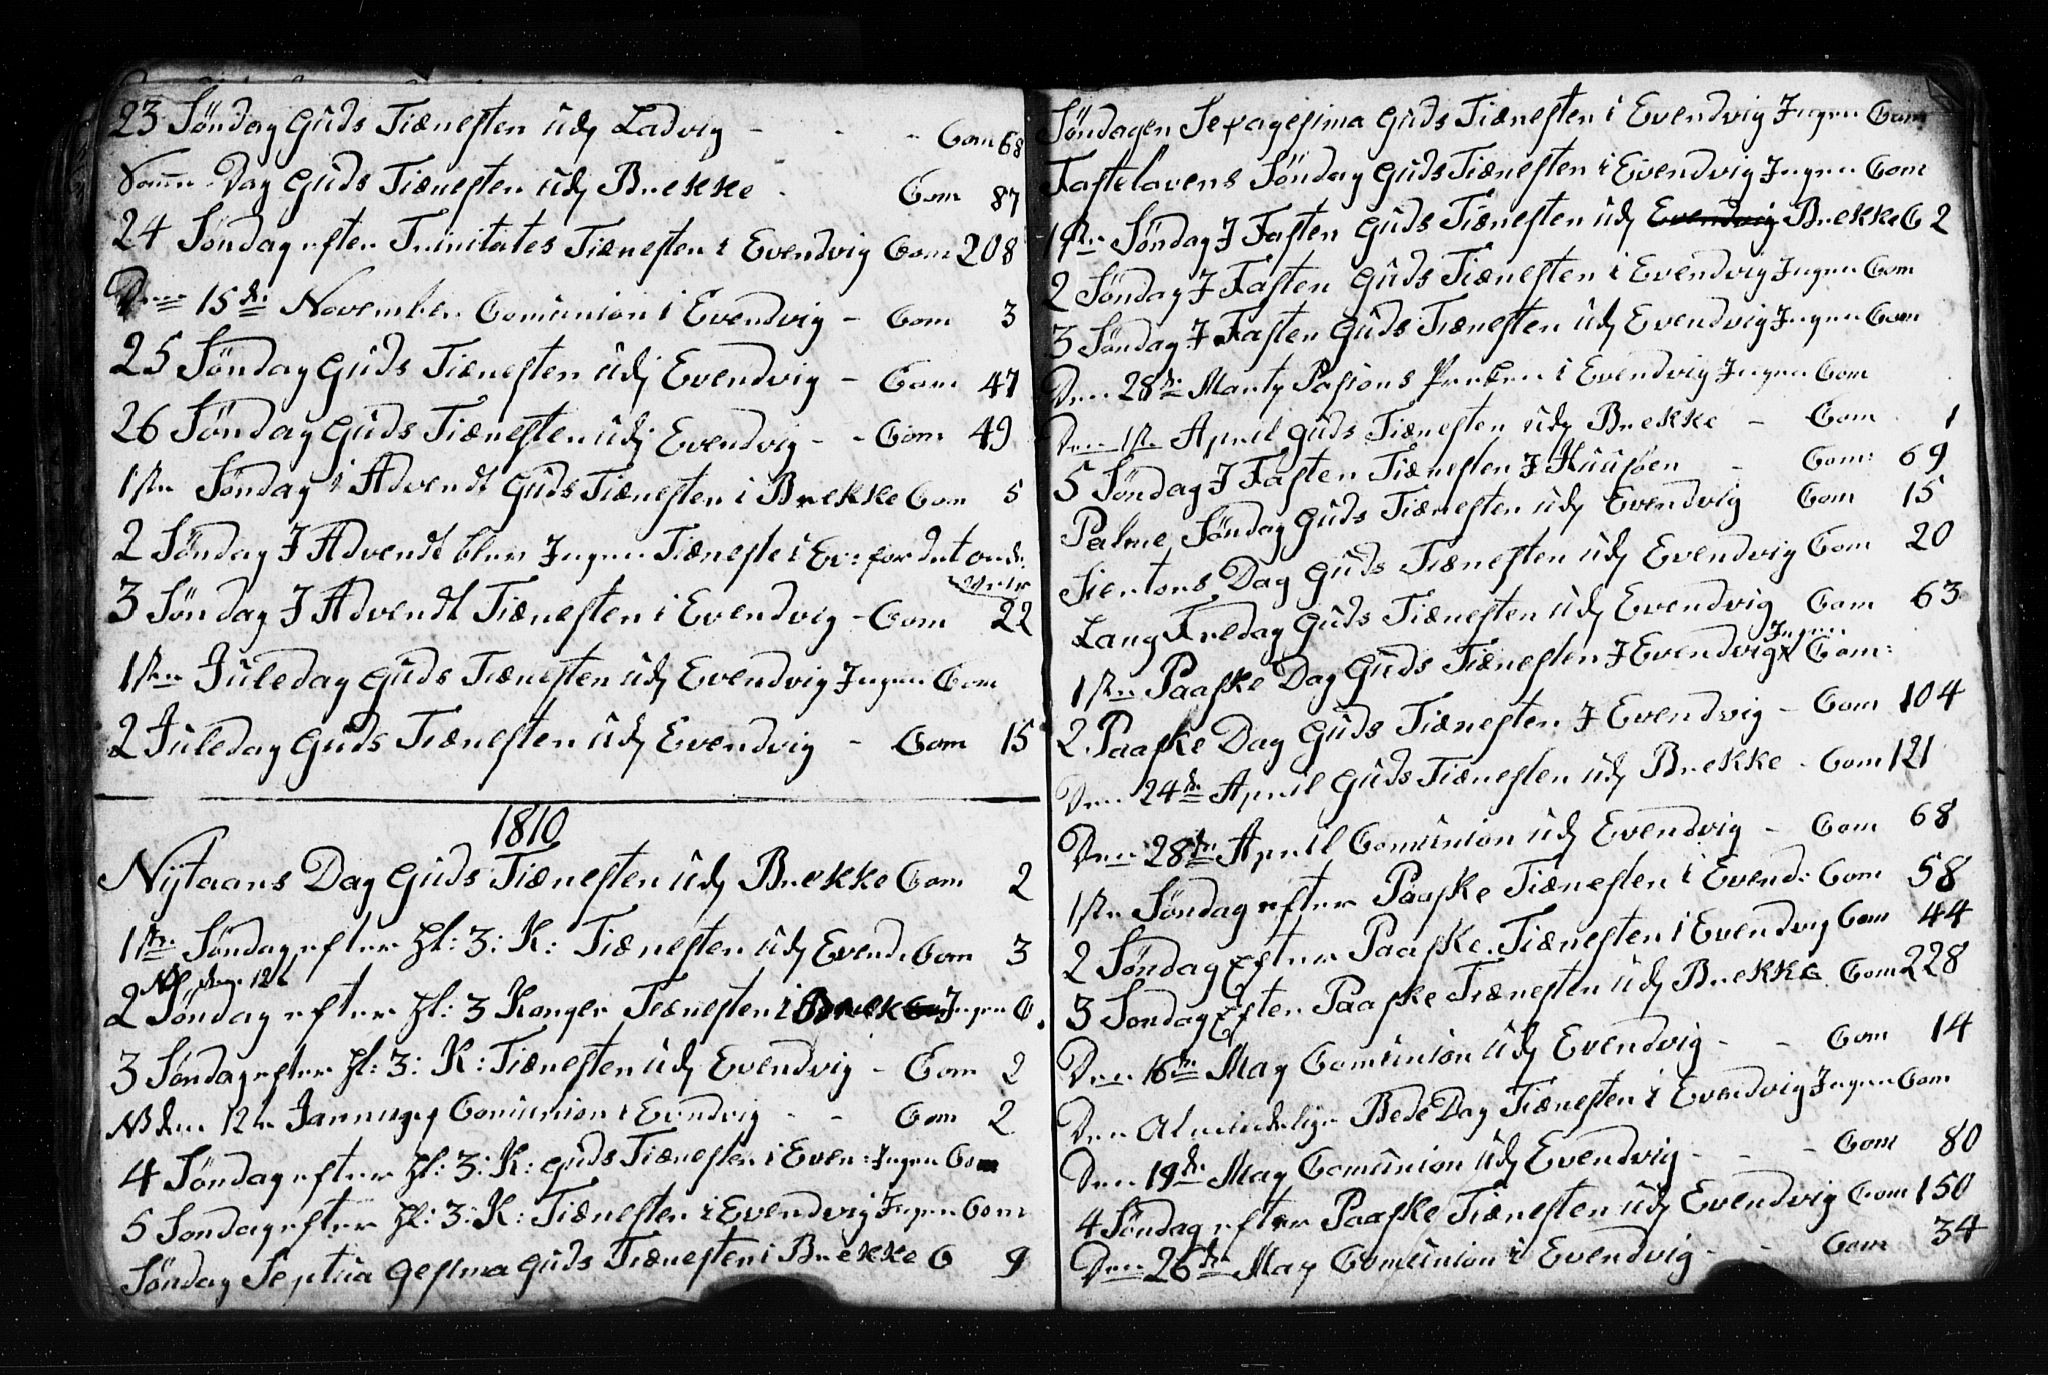 23 Søndag Guds Tiænesten udj Ladvig - - - Com 68
Samme Dag Guds Tiænesten udj Brekke - Com 87
24 Søndag efter Trinitates Tiænesten i Evendvig Com 208
Den 15de November Comunion i Evendvig - Com 3
25 Søndag Guds Tiænesten udj Evendvig - Com 47
26 Søndag Guds Tiænesten udj Evendvig - - Com 49
1ste Søndag i Advendt Guds Tiænesten i Brekke Com 5
2 Søndag J Advendt blev Ingen Tiæneste i Ev: for det onde
Veir
3 Søndag J Advendt Tiænesten i Evendvig - Com 22
1ste Juledag Guds Tiænesten udj Evendvig Ingen Com
2 Juledag Guds Tiænesten udj Evendvig - Com 15
1810
Nÿtaars Dag Guds Tiænesten udj Brekke Com 2
1ste Søndag efter Hl: 3: K: Tiænesten udj Evend: Com 3
2 Søndag efter Hl: 3 Konger Tiænesten i Brek Ingen C.
3 Søndag efter Hl: 3: K: Tiænesten udj Evendvig - Com 2
NB den 12te Januarj Comunion i Evndvig - - Com 2
4 Søndag efter Hl: 3: K: Guds Tiænesten i Even: Ingen Com
5 Søndag efter Hl: 3: K: Tiænesten i Evendvig Ingen Com
Søndag Septua Gesima Guds Tiænesten i Brekke C 9
Søndagen Sexagesima Guds Tiænesten i Evendvig Ingen Com
Fastelavens Søndag Guds Tiænesten i Evendvig Ingen Com
1ste Søndag J Fasten Guds Tiænesten udj Evendvig Brekke C 2
2 Søndag J Fasten Guds Tiænesten i Evendvig Ingen Com
3 Søndag J Fasten Guds Tiænesten udj Evendvig Ingen Com
Den 28de Martj Pasions Preken i Evendvig Ingen Com
Den 1ste April Guds Tiænesten udj Brekke - Com 1
5 Søndag J Fasten Tiænesten J Huusøen - Com: 69
Palme Søndag Guds Tiænesten udj Evendvig Com 15
Siertors Dag Guds Tiænesten udj Evendvig Com 20
Lang Fredag Guds Tiænesten udj Evendvig Com 63
1ste Paaske Dag Guds Tiænesten J Evendvig Ingen Com:
2 Paaske Dag Guds Tiænesten J Evendvig - Com 104
Den 24de April Guds Tiænesten udj Brekke - Com 121
Den 28de April Comunion udj Evendvig - Com 68
1ste Søndag efter Paaske Tiænesten i Evend: Com 58
2 Søndag Efter Paaske Tiænesten i Evendvig Com 44
3 Søndag Efter Paaske Tiænesten udj Brekke Com 228
Den 16de May Comunion udj Evendvig - - Com 14
Den Almindelige Bede Dag Tiænesten i Evendvig Ingen Com
Den 19de May Comunion udj Evendvig - - - Com 80
4 Søndag efter Paaske Tiænesten udj Evendvig Com 150
Den 26de May Comunion i Evendvig - - Com 34